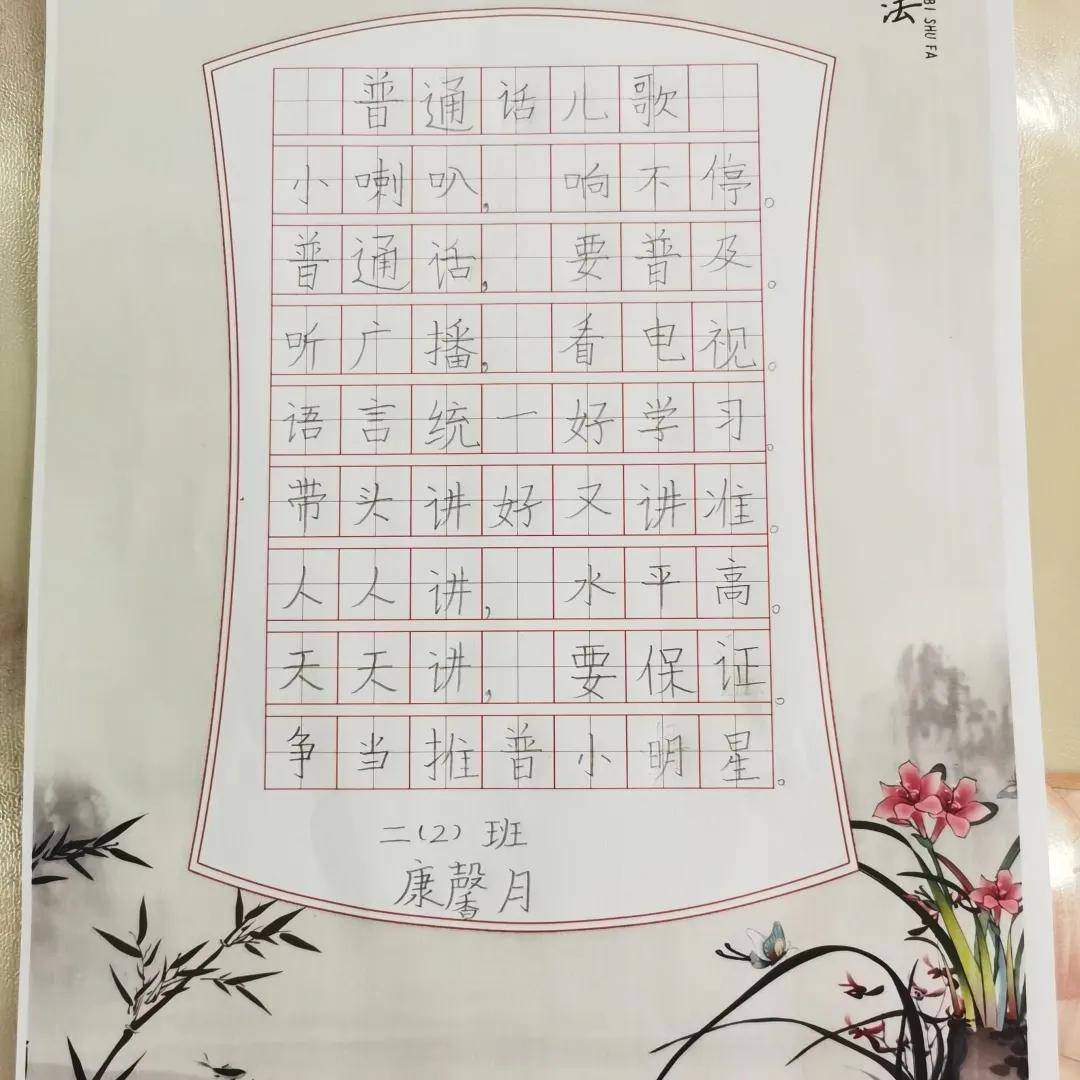 法
BI SHU FA
普通话儿歌
小喇叭,响不停。
普通话,要普及。
听广播,看电视。
语言统一好学习。
带头讲好又讲准。
人人讲,水平高。
天天讲,要保证。
争当推普小明星。
二(2)班
康馨月